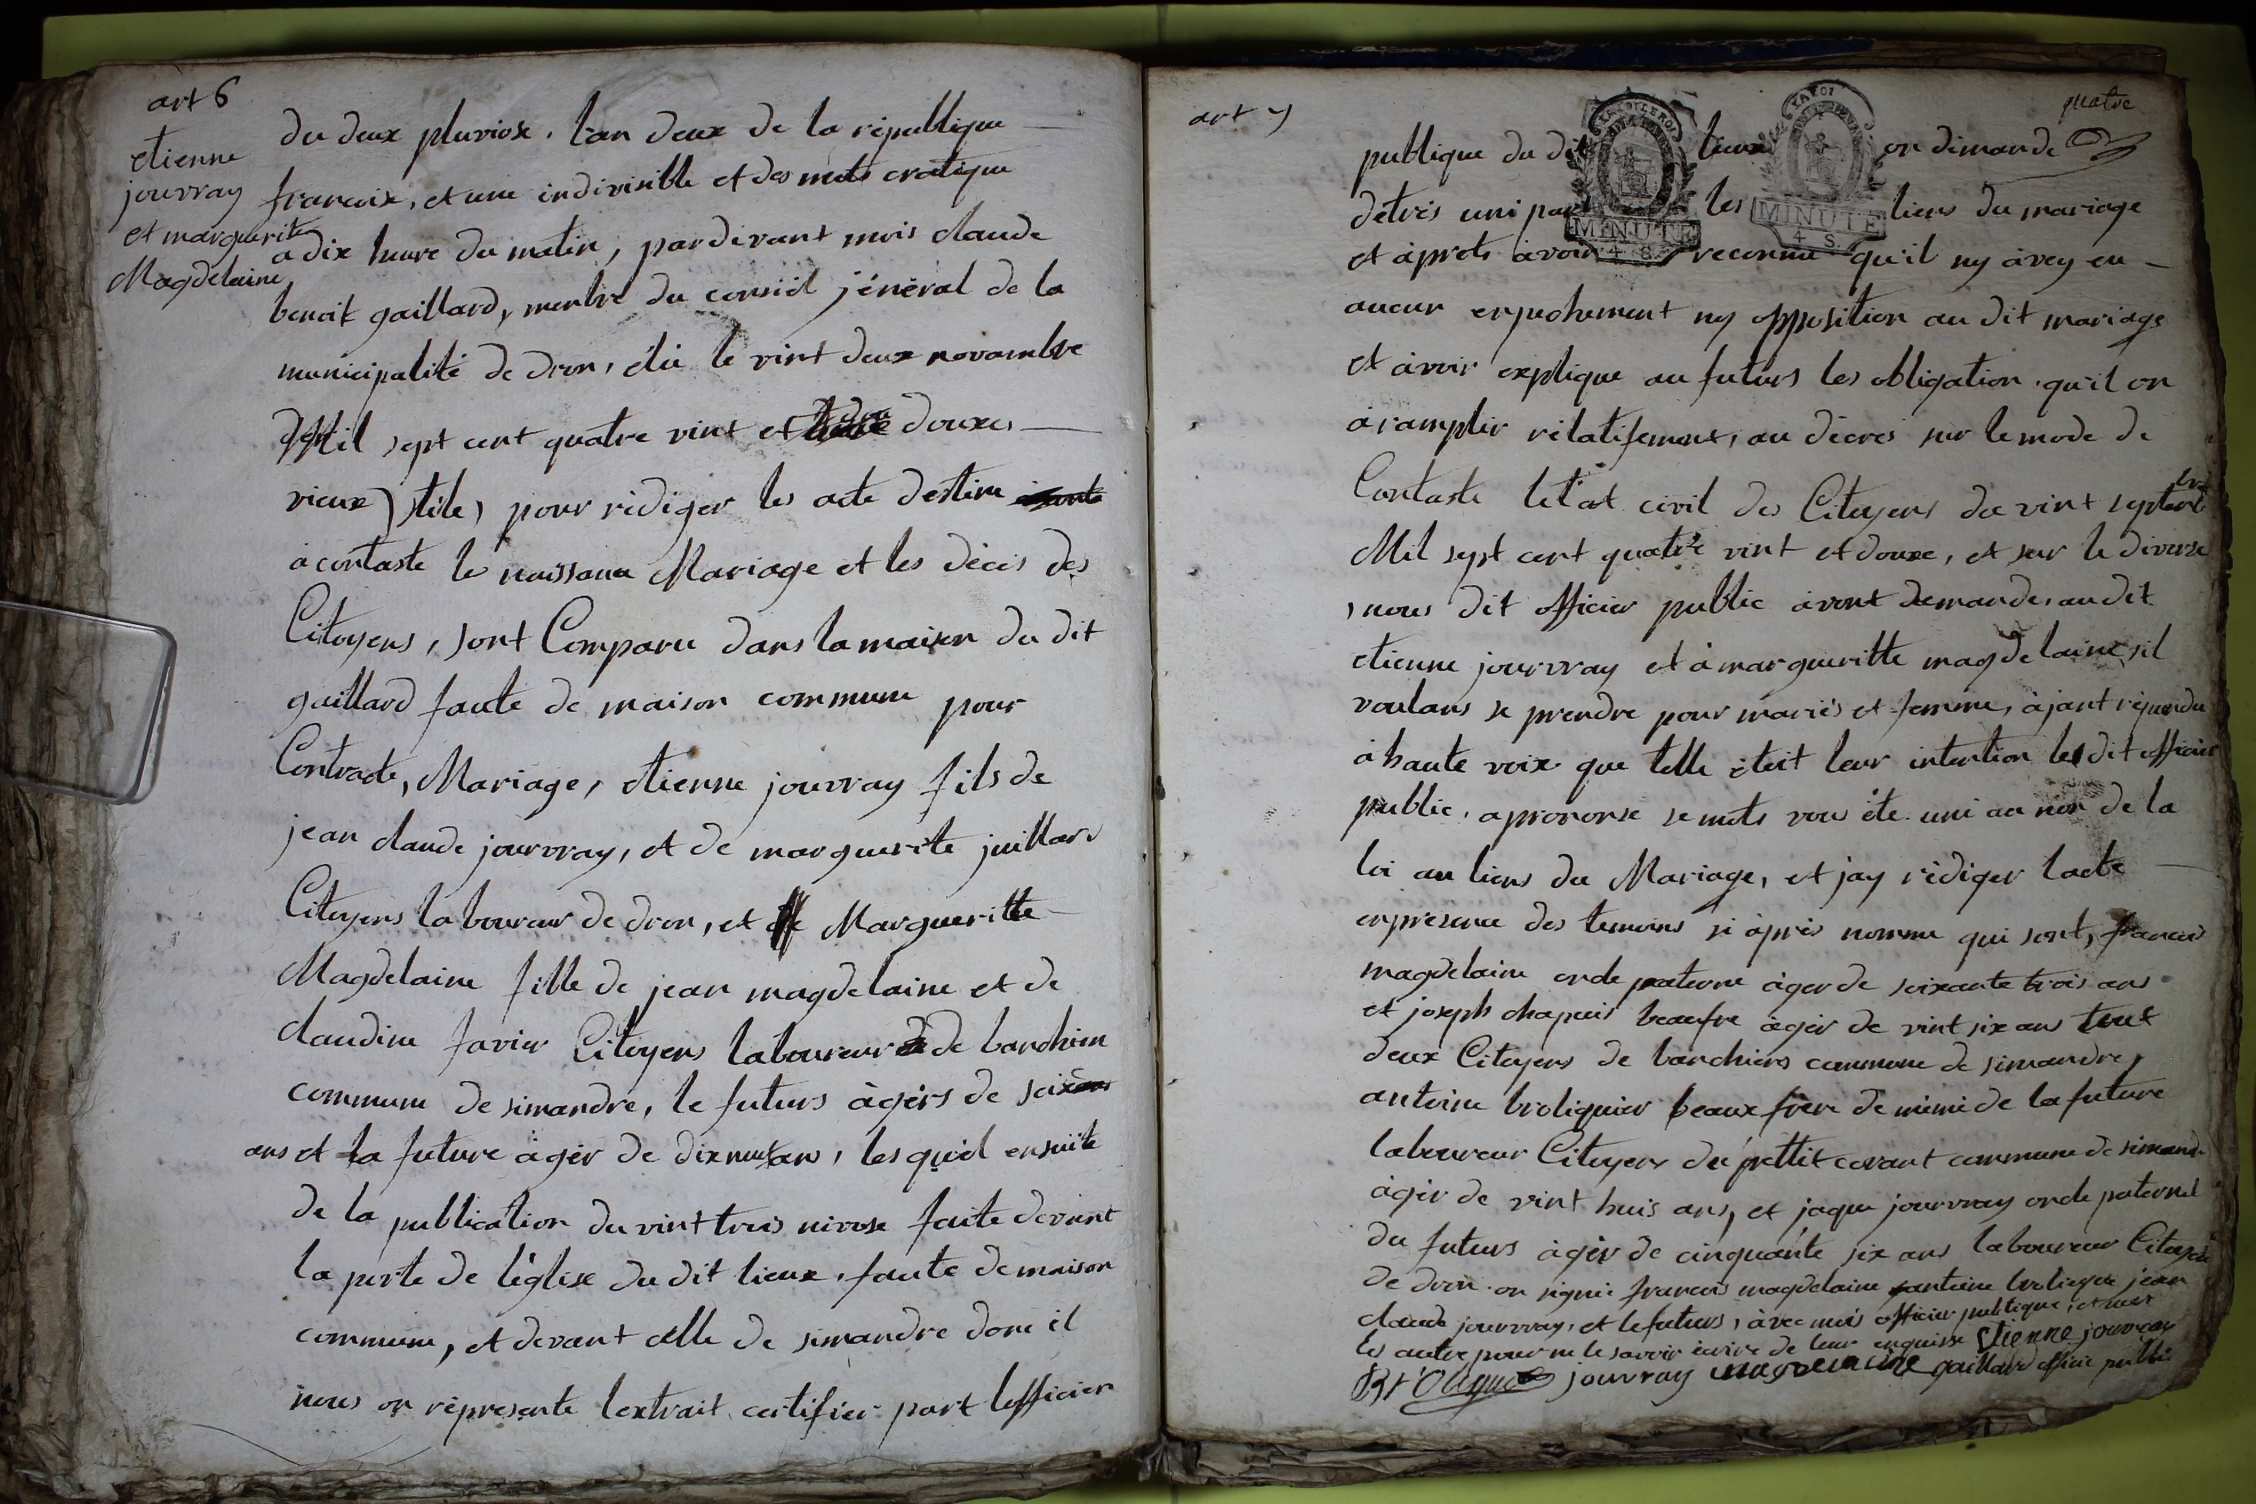 art 6
etienne
jouvray
et marguerite
Magdelaine
du deux pluviose. l'an deux de la republique
francoise, et une indivisible et des mots cratique
a dix heure du matin, pardevant mois claude
benoit gaillard, menbre du conseil jénéral de la
municipalité de dron, élu le vint deux novambre
Mil sept cent quatre vint et douxes
vieux stile, pour rédiger les acte destine
a contaste le naissance Mariage et les décès des
Citoyens, sont Comparu dans la maison du dit
gaillard faute de maison commune pour
Contracte, Mariage, etienne jouvray fils de
jean claude jouvray, et de marguerite juillard
Citoyens laboureur de dron, et Margueritte
Magdelaine fille de jean magdelaine et de
claudine favier Citoyens laboureur de
commune de simandre, le futurs àgérs de
ans et la future àgér de dix neuf ans, les quél ensuite
de la publication du vint trois nivose faite devant
la porte de l'église du dit lieux, faute de maison
commune, et devant célle de simandre dont il
nous on répresente lextrait certifier part lofficier
art 7
quatre
publique du dit lieux on dimande
détrés uni part les liens du mariage
et àprets àvoir reconnu qu'il ny àvey eu
aucun enpechement ny opposition au dit mariage
et àvoir explique au futurs les obligation qu'il on
à ramplir rélatifement, au décres sur le mode de
Contaste létat civil des Citoyens du vint septenbre
Mil sept cent quatre vint et douxe, et sur le divorse
nous dit officier public àvont demande au dit
etienne jouvray et à margueritte magdelaine sil
voulans se prendre pour mariés et femme, àjant répondu
à haute voix que telle étoit leur intention le dit officier
public, a prononse se mots vous éte uni au non de la
loi au liens du Mariage, et jay rédiger lacte
enpresence des temoins si àprès nomme qui sont, francois
magdelaine oncle paterne àger de soixante trois ans
et joseph chapuis beaufre àgér de vint six ans tous
deux Citoyens de commune de simandre,
antoine broliquier beaux frère de mémé de la future
laboureur Citoyen du pettit corant commune de simandre
àgér de vint huis ans, et jaque jouvray oncle paternel
du futurs àgér de cinquante six ans laboureur Citoyen
de dron. on signé francois magdelaine antoine jean
claude jouvray, et le futurs, àvec mois officier publique, et non
les autre pour ne le savoir écrire de leur enquisse Etienne jouvray
jouvray magdelaine gaillard officié public
MINUTE
4 S.
MINUTE
4 S.